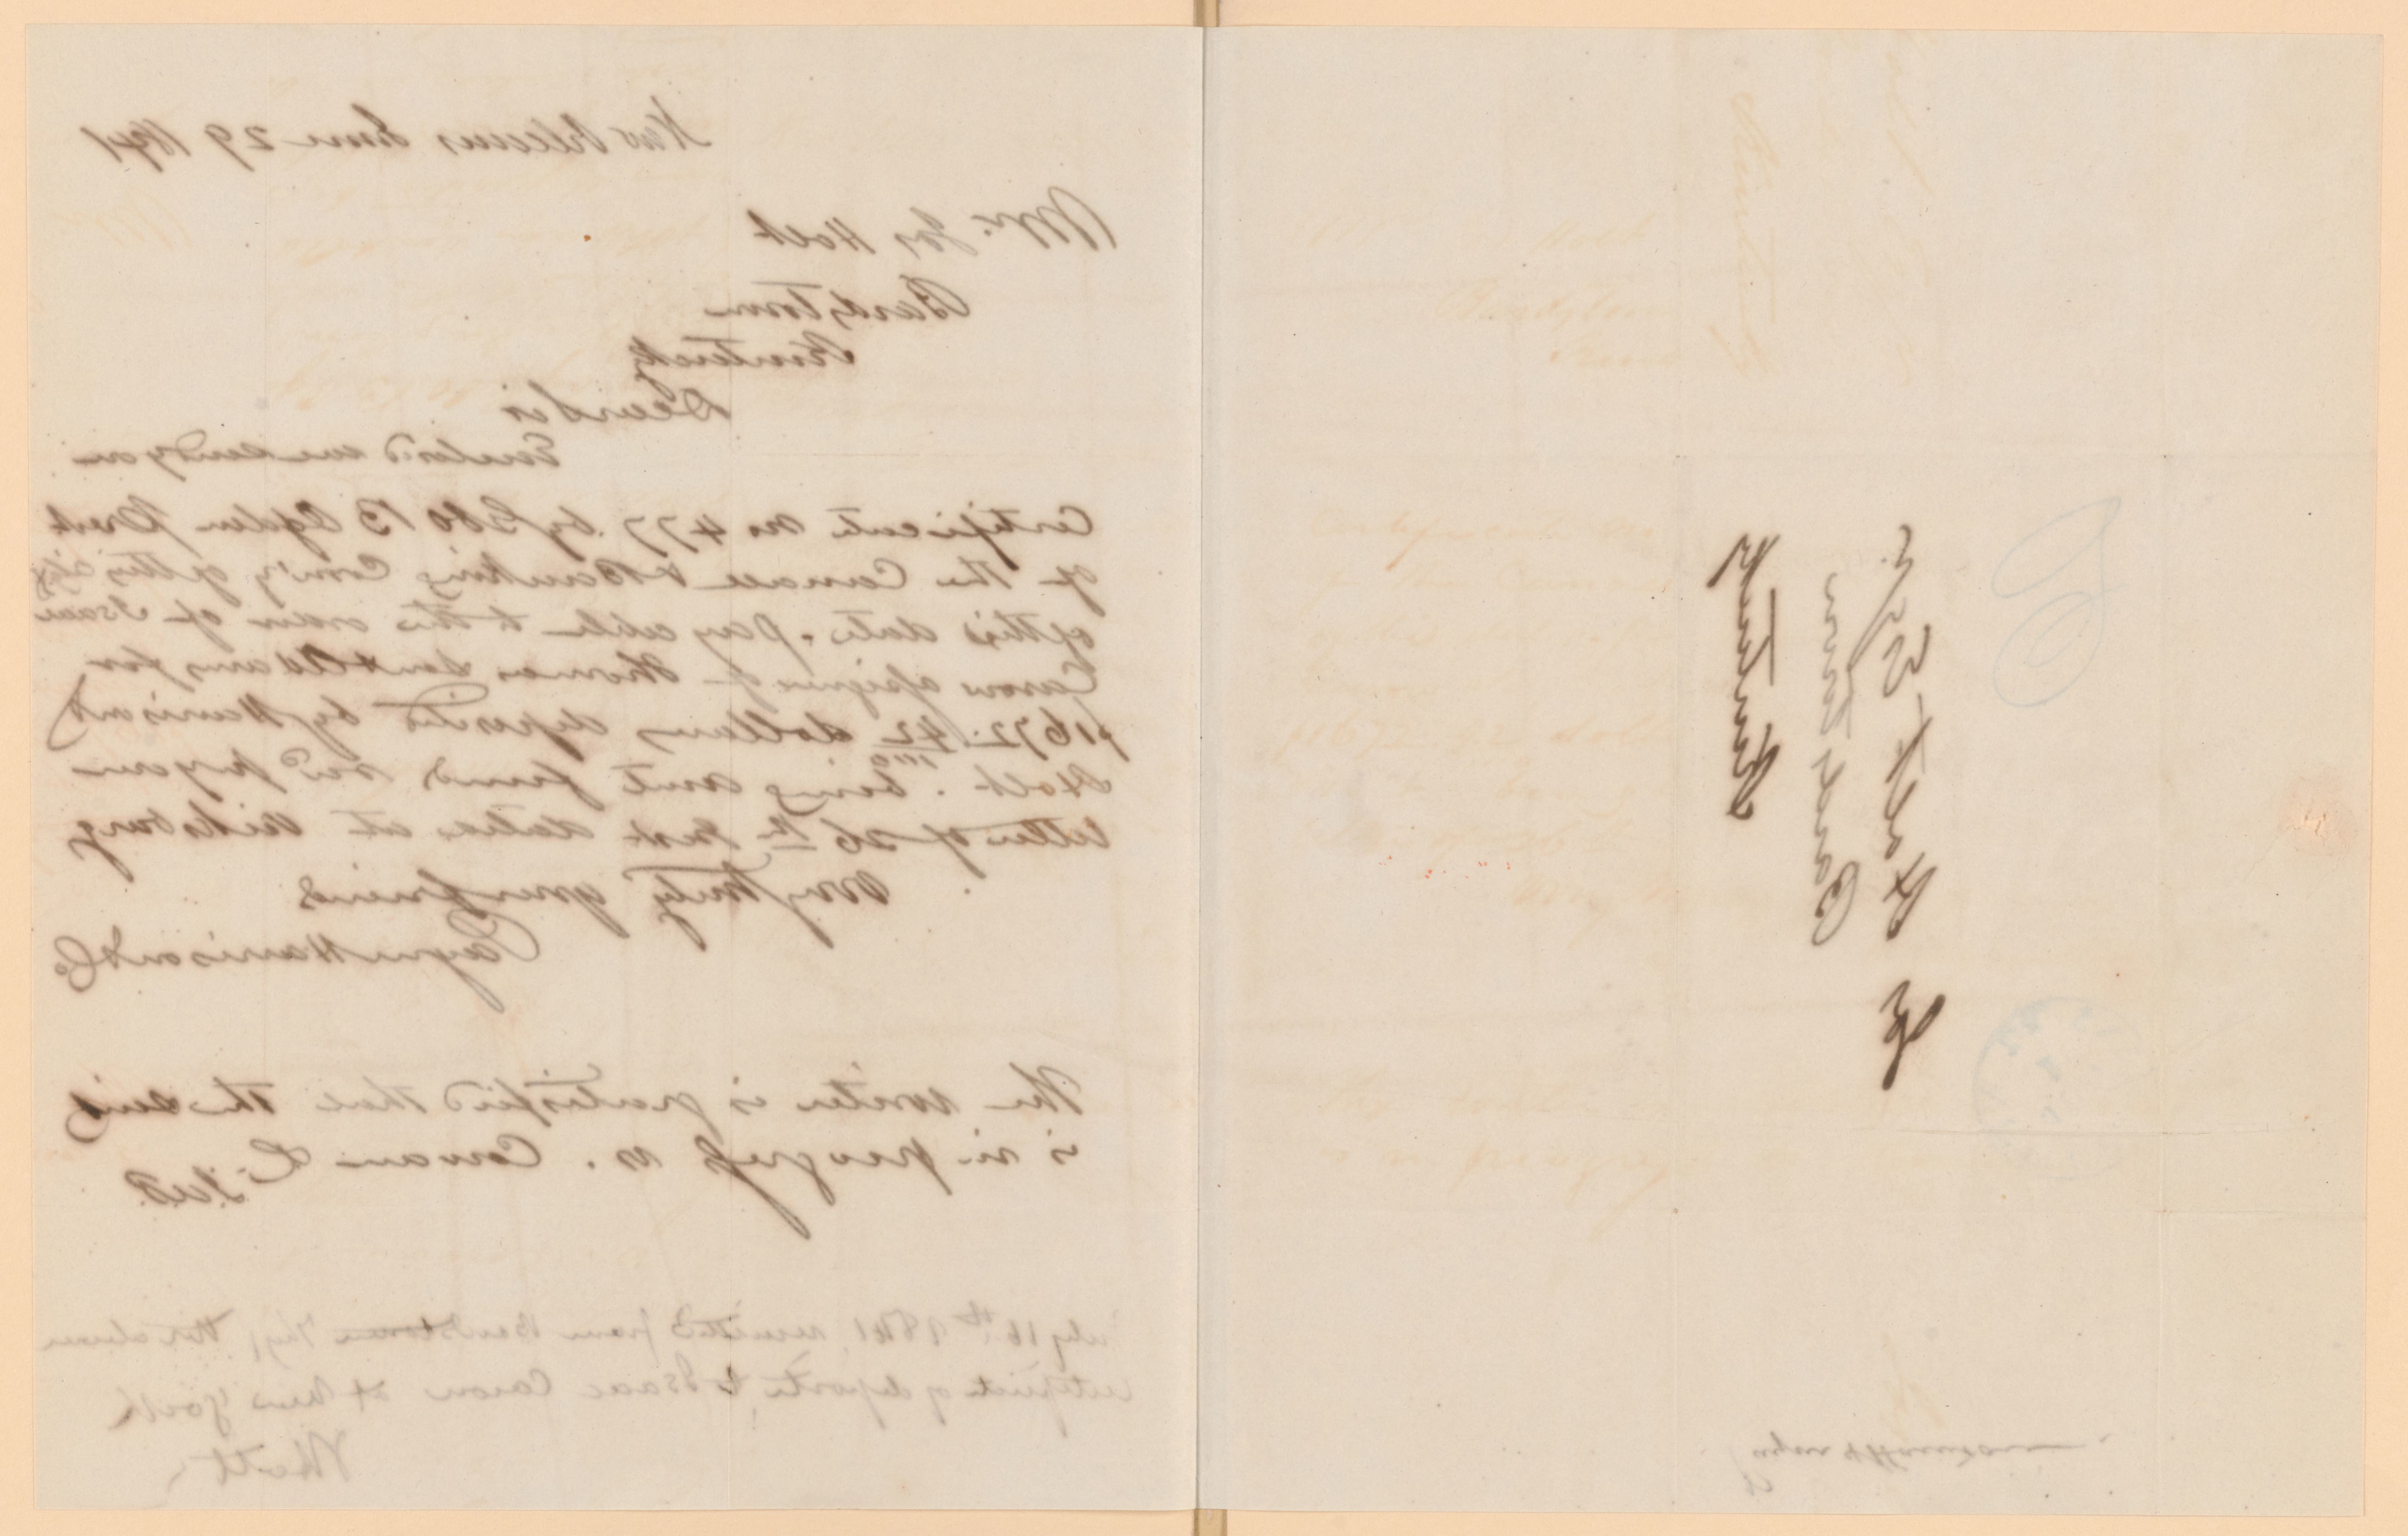 New Orleans June 29 1841
Mr. Jos Holt
Bardstown
Kentucky
Dear Sir
Enclosed we send you
Certificate No 477 by Geo B Ogden Prest
of the Canal & Banking Com'y of this City
of this date. payable to the order of Isaac
Caron assignee of Thomas Adams for
$1672.42/100 dollars deposited by Harrison &
Holt. being amt funds recd pr your
letter of 26th inst dated at Vicksburg
Very Truly your friends
Payne Harrison & Co
The writer is gratified that the suit
is in progress vs. Cowan &
July 16th 1841, remitted from Bardstown Ky, the above
certificate of deposite to Isaac Caron at New York
J Holt
J. Holt Esq.
Bardstown
Kentucky
Payne & Harrison